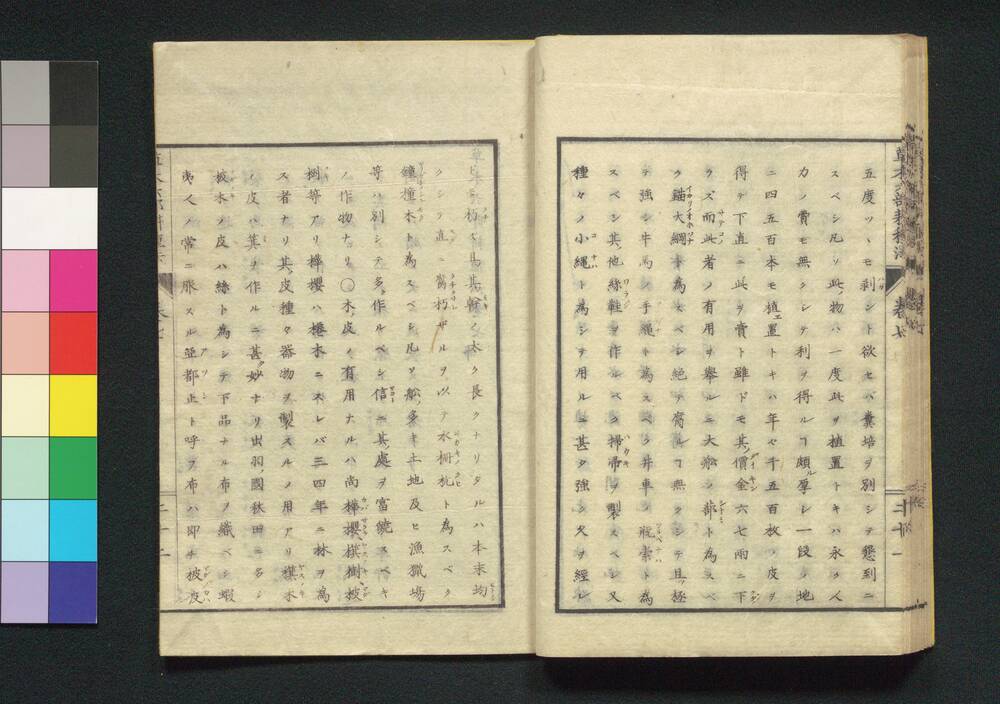 五度ツヽモ剥シト欲セバ糞培ヲ別シテ懇到ニ
スベシ凡ソ此物ハ一度此ヲ植置トキハ永ク人
力ノ費モ無クシテ利ヲ得ルヿ頗ル厚シ一段ノ地
ニ四五百本モ植置トキハ年々千五百枚ノ皮ヲ
得テ下直ニ此ヲ賣ト雖ドモ其價金六七兩ニ下
ラズ而此者ノ有用ヲ擧ルニ大舩ノ蔀ト為スベ
ク錨大綱ト為スベシ絶テ腐ルヿ無クシテ且極
テ強シ牛馬ノ手縄ト為スベク井車ノ瓶索ト為
スベシ其他絲鞋ヲ作ルベク掃帚ヲ製スベシ又
種々ノ小縄ト為シテ用ルニ甚タ強シ久ヲ經レ
ヒ朽ズ且其幹ノ太ク長クナリタルハ本末均
クシテ直ニ腐朽ザルヲ以テ水柵杭ト為スベク
鐘撞木ト為スベシ凡ソ舩多キ土地及ヒ漁獵場
等ハ別シテ多ク作ルベシ信ニ其處ヲ富饒スベキ
ノ作物ナリ〇木ノ皮ノ有用ナルハ尚樺櫻樸樹被
樹等アリ樺櫻ハ棬木ニスレバ三四年ニ林ヲ為
ス者ナリ其皮種々器物ヲ製スルノ用アリ樸木
ノ皮ハ箕ヲ作ルニ甚妙ナリ出羽ノ國秋田ニ多シ
被木ノ皮ハ絲ト為シテ下品ナル布ヲ織ベシ蝦
夷人ノ常ニ服スル亜都止ト呼フ布ハ即チ被皮